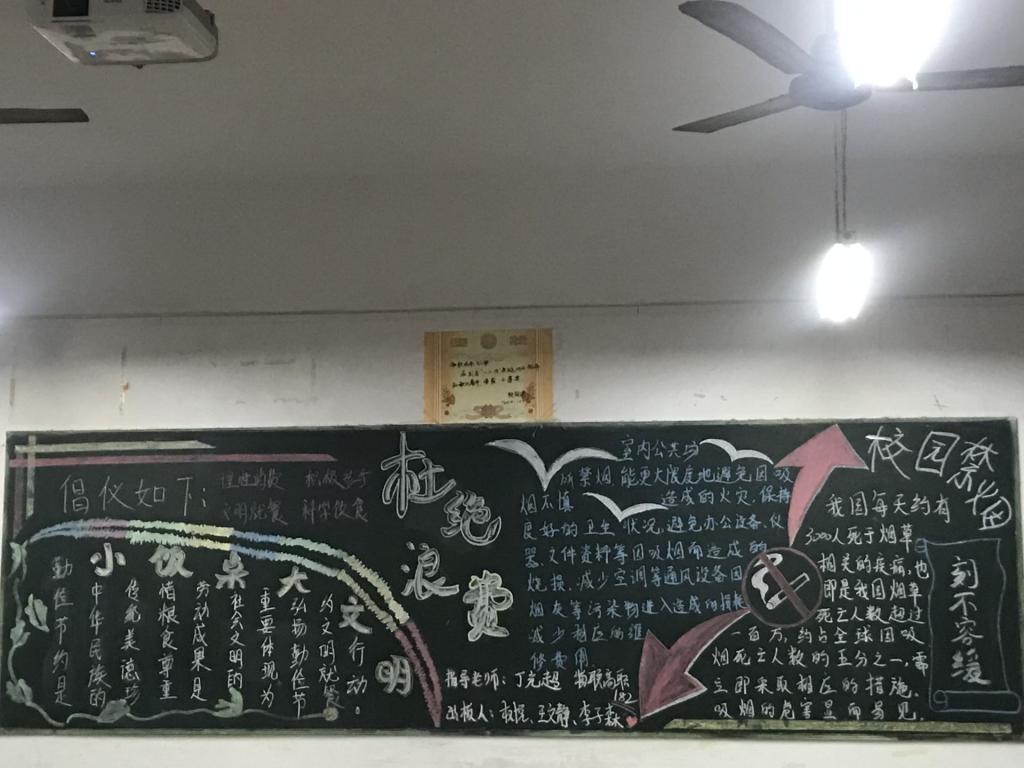 倡仪如下:
理性消费 积极参与
文明就餐 科学饮食
小饭桌大文明
勤俭节约是
中华民族的
传统美德珍
惜粮食尊重
劳动成果是
社会文明的
重要体现为
弘扬勤俭节
约文明就餐
行动。
杜绝浪费
室内公共场
所禁烟能更大限度地避免因吸
烟不慎造成的火灾,保持
良好的卫生状况,避免办公设备、仪
器、文件资料等因吸烟而造成的
烧损,减少空调等通风设备因
烟灰等污染物进入造成的损耗
减少相应的维
修费用
指导老师:丁克超
出板人:
王文静、李子森
校园禁烟
刻不容缓
我国每天约有
3000人死于烟草
相关的疾病,也
即是我国烟草
死亡人数超过
一百万,约占全球因吸
烟死亡人数的五分之一,需
立即采取相应的措施。
吸烟的危害显而易见。